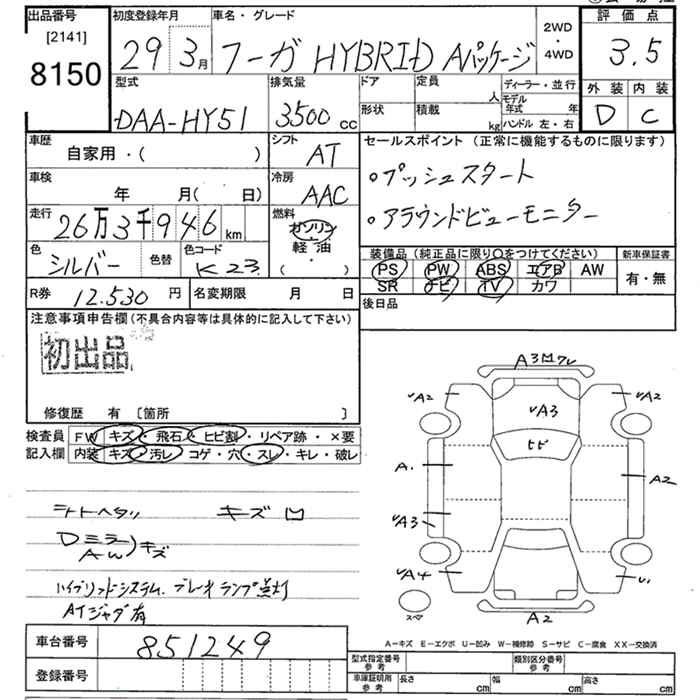 出品番号 初度登録年月 車名・グレード 2WD・4WD 評価点
[2141]
8150
29年3月 フーガ HYBRID Aパッケージ 3.5
型式 排気量 ドア 定員 人 ディーラー・並行 外装 内装
DAA-HY51 3500cc 形状 積載 kg モデル年式 年 D C
ハンドル 左・右
車歴 シフト セールスポイント (正常に機能するものに限ります)
自家用・( ) AT
・プッシュスタート
車検 冷房
年 月( 日) AAC
・アラウンドビューモニター
走行 燃料
26万3千946km ガソリン
軽油
・( )
色 色替 色コード
シルバー K23
装備品 (純正品に限り〇をつけてください) 新車保証書
PS PW ABS エアB AW 有・無
SR ナビ TV カワ
R券 12.530円 名変期限 月 日 後日品
注意事項申告欄 (不具合内容等は具体的に記入して下さい)
初出品
修復歴 有 [箇所 ]
検査員 FW キズ・飛石・ヒビ割・リペア跡・×要
記入欄 内装 キズ・汚レ・コゲ・穴・スレ・キレ・破レ
シートヘタリ キズ凹
Dミラー
AW)キズ
ハイブリッドシステム. ブレーキランプ点灯
A1ジャダ有
A3凹ワレ
A2 A2
A3
ヒビ
A. A2
A3
A4 U1
スペア
A2
A−キズ E−エクボ U−凹み W−補修跡 S−サビ C−腐食 XX−交換済
車台番号 851249
登録番号
型式指定番号 参考 類別区分番号 参考
車庫証明用 参考 長さ cm 幅 cm 高さ cm